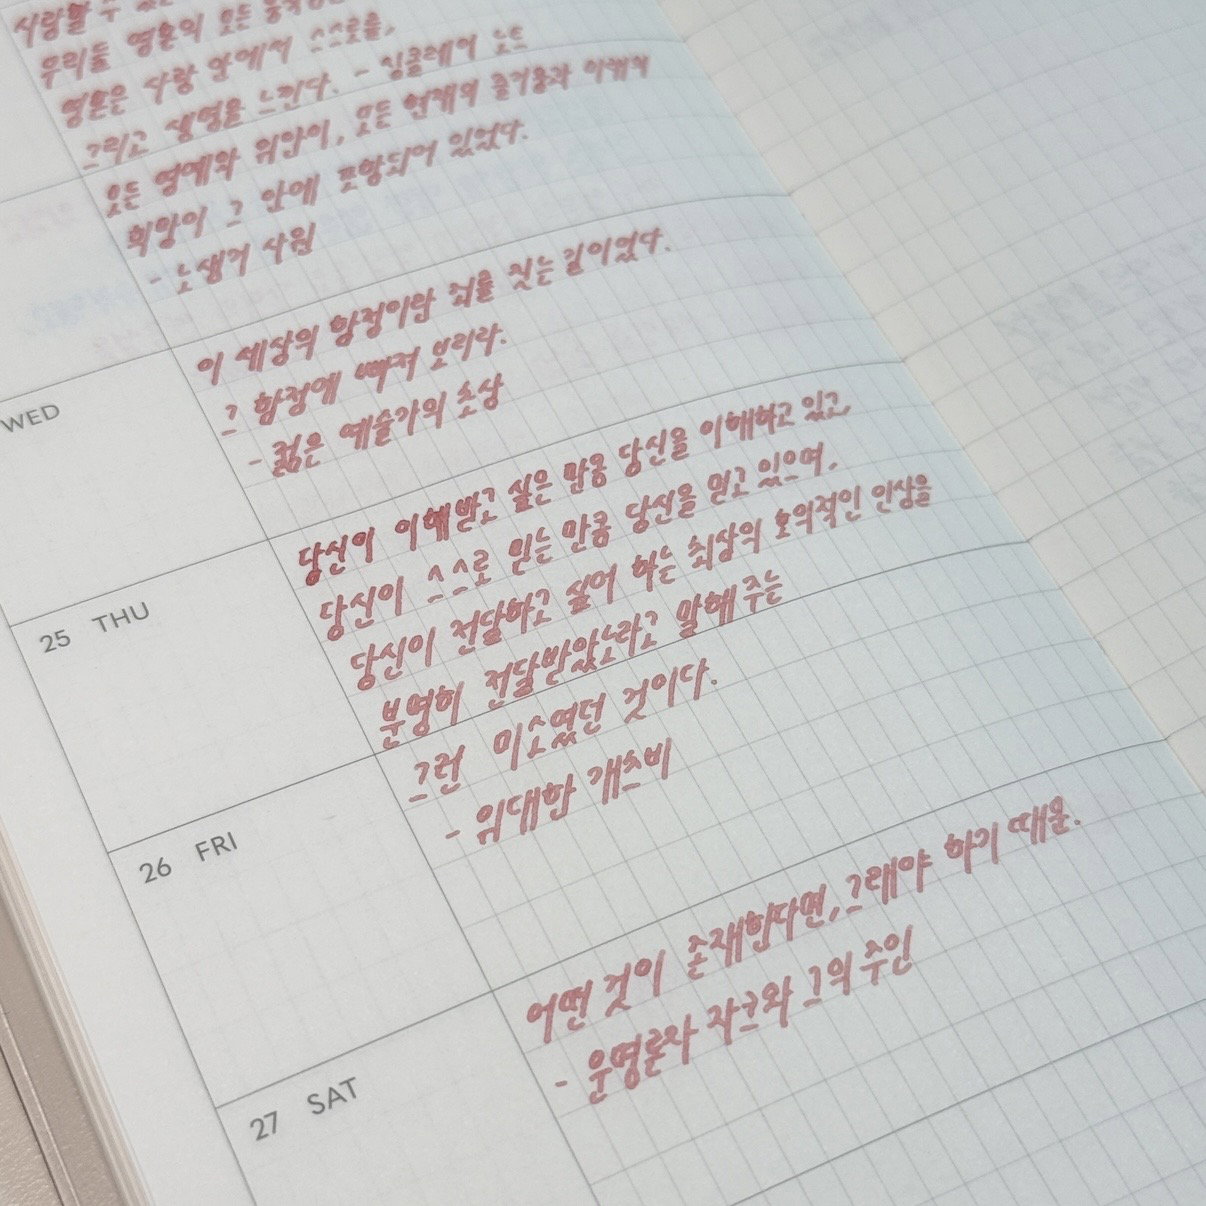 사랑할 수
우리들 영혼의 모든 움직임
영혼은 사랑 안에서 스스로를,
그리고 생명을 느낀다. - 싱클레어 노트
모든 명예와 위안이, 모든 현재의 즐거움과 미래의
희망이 그 안에 포함되어 있었다.
- 노생거 사원
이 세상의 함정이란 죄를 짓는 길이었다.
그 함정에 빠져 보리라.
- 젊은 예술가의 초상
WED
당신이 이해받고 싶은 만큼 당신을 이해하고 있고,
당신이 스스로 믿는 만큼 당신을 믿고 있으며,
당신이 전달하고 싶어 하는 최상의 호의적인 인상을
분명히 전달받았노라고 말해 주는
그런 미소였던 것이다.
- 위대한 개츠비
25 THU
26 FRI
어떤 것이 존재한다면, 그래야 하기 때문.
- 운명론자 자크와 그의 주인
27 SAT